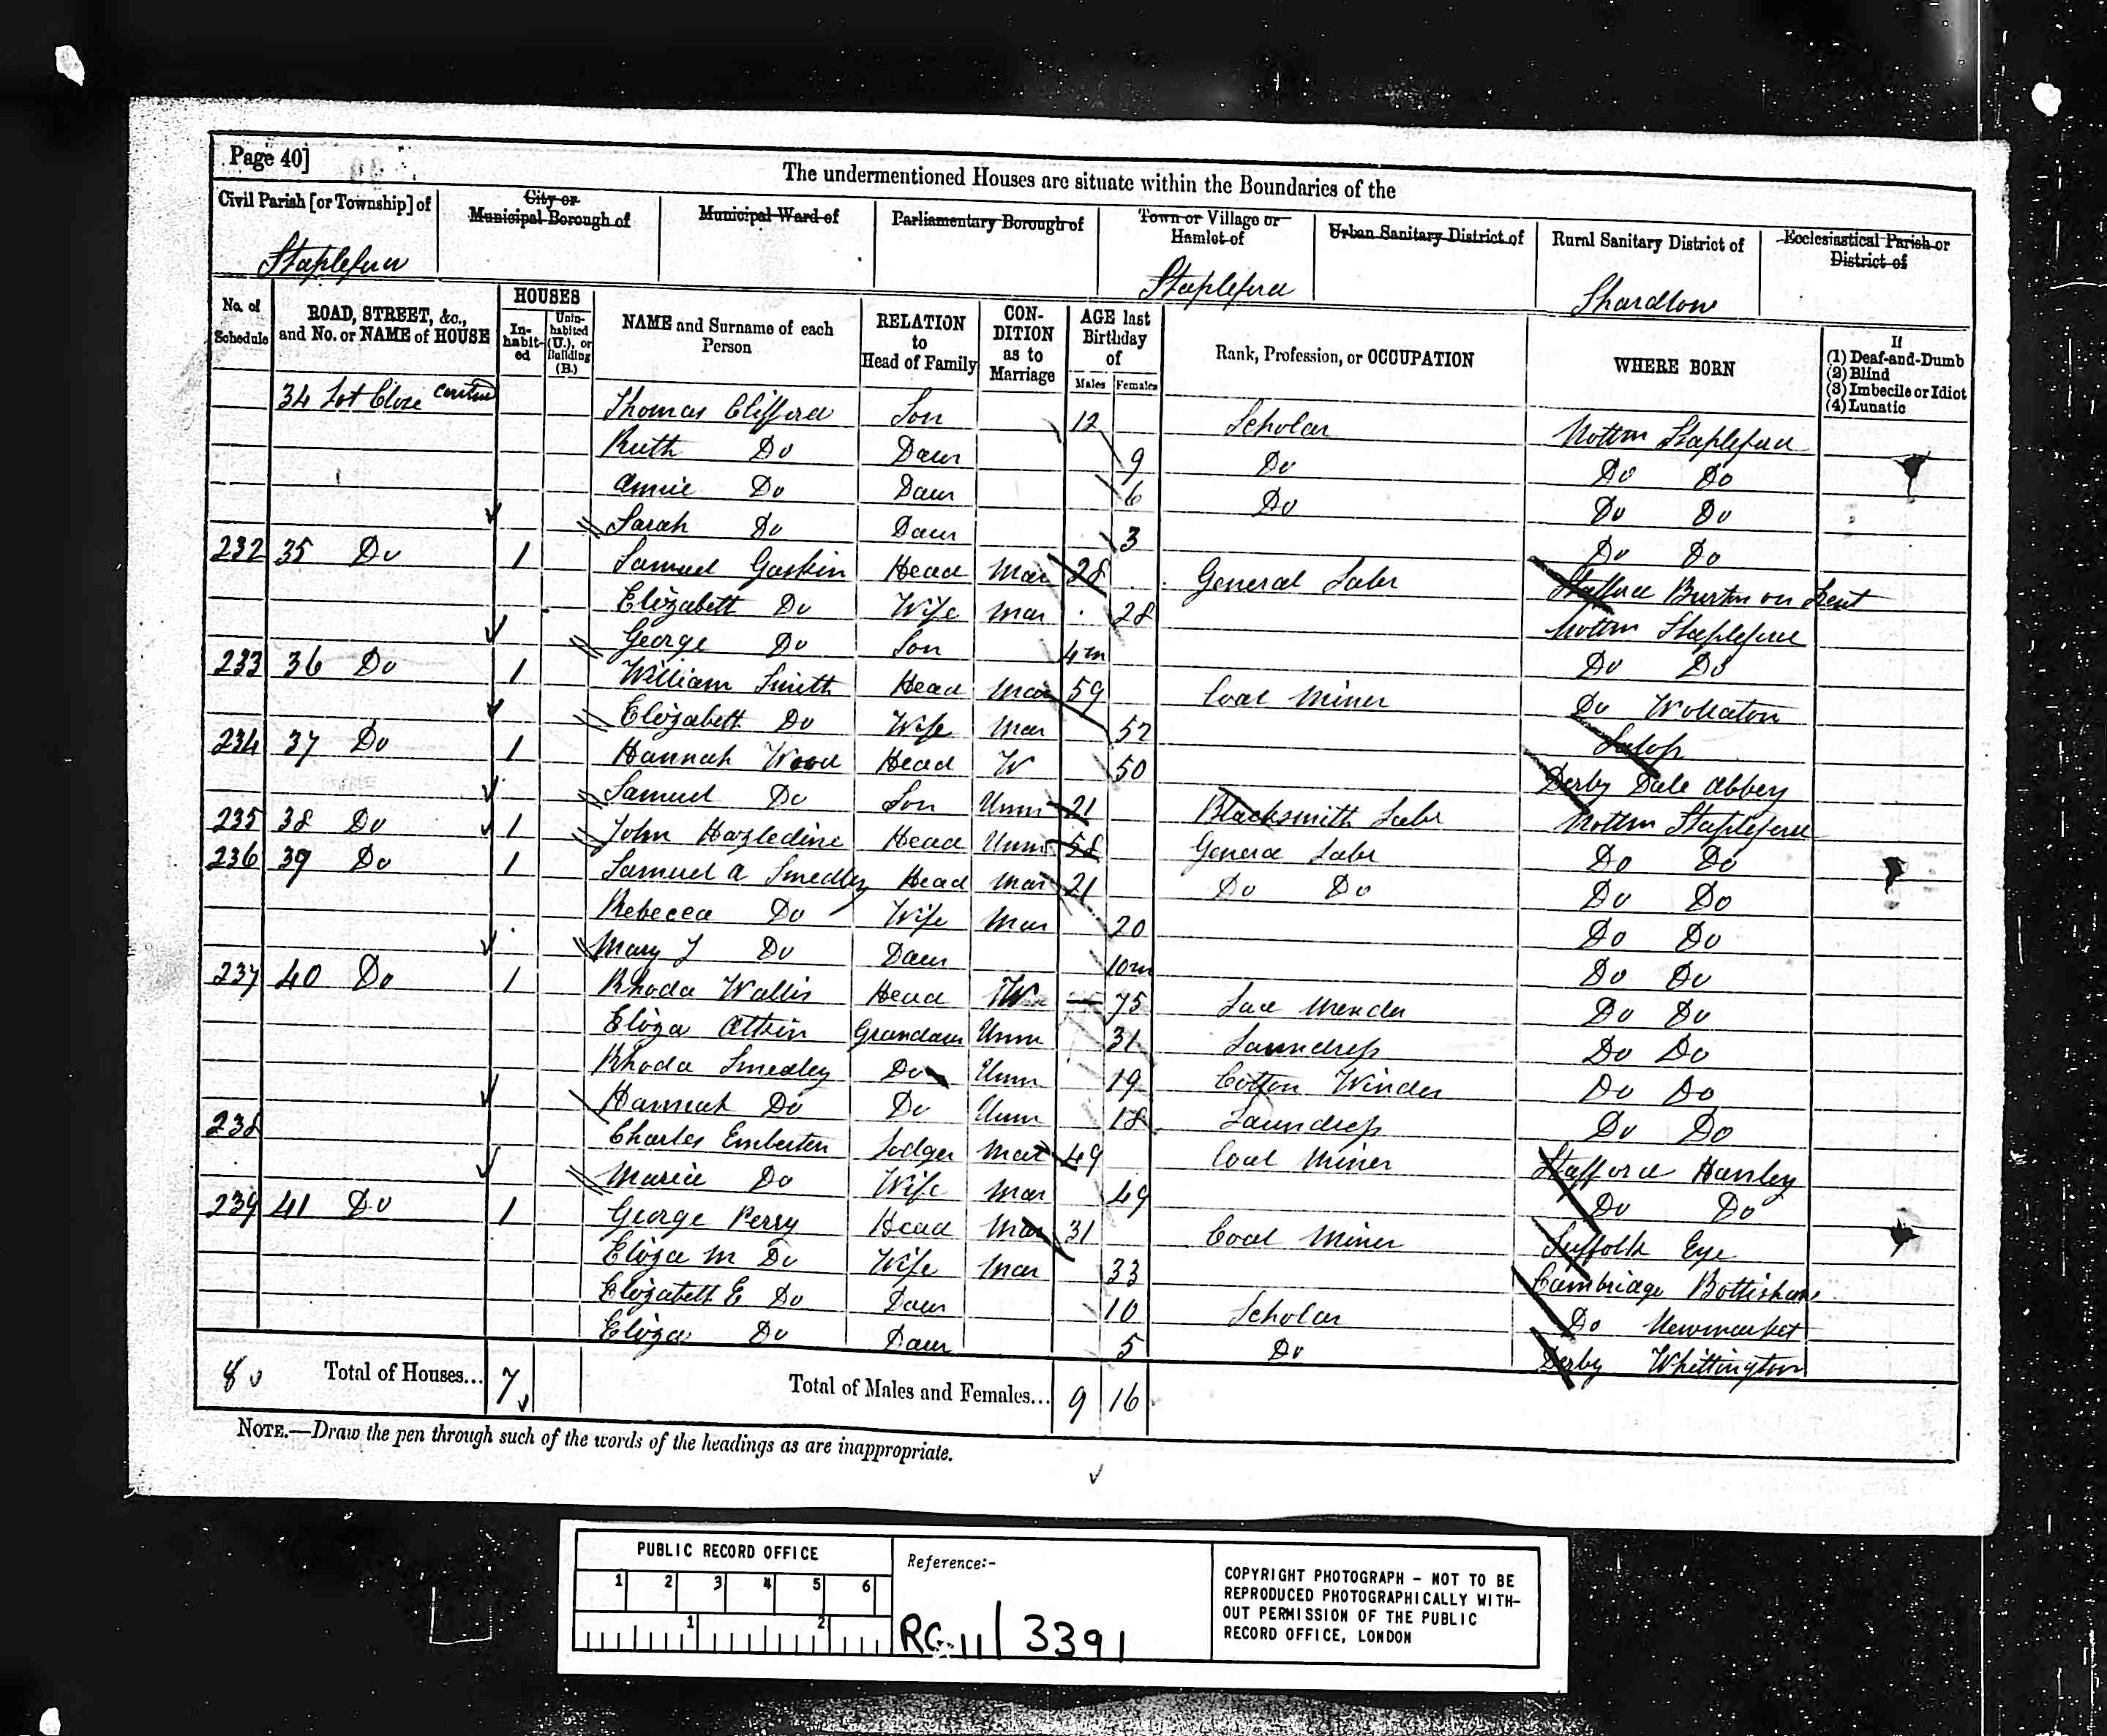 Page 40]
The undermentioned Houses are situate within the Boundaries of the
Civil Parish [or Township] of
City or Municipal Borough of
Municipal Ward of
Parliamentary Borough of
Town or Village or Hamlet of
Urban Sanitary District of
Rural Sanitary District of
Ecclesiastical Parish or District of
Stapleford Stapleford Shardlow
No. of Schedule
ROAD, STREET, &c., and No. or NAME of HOUSE
HOUSES
Inhabited
Uninhabited (U.), or Building (B.)
NAME and Surname of each Person
RELATION to Head of Family
CONDITION as to Marriage
AGE last Birthday of
Males Females
Rank, Profession, or OCCUPATION
WHERE BORN
If
(1) Deaf-and-Dumb
(2) Blind
(3) Imbecile or Idiot
(4) Lunatic
34 Lot Close Thomas Clifford Son 12 Scholar Nottm Stapleford
Ruth Do Daur 9 Do Do Do
Annie Do Daur 6 Do Do Do
Sarah Do Daur 3 Do Do
232 35 Do 1 Samuel Gaskin Head Mar 28 General Labr Stafford Burton on Trent
Elizabeth Do Wife Mar 28 Nottm Stapleford
George Do Son 4m Do Do
233 36 Do 1 William Smith Head Mar 59 Coal Miner Do Wollaton
Elizabeth Do Wife Mar 52 Salop
234 37 Do 1 Hannah Wood Head W 50 Derby Dale Abbey
Samuel Do Son Unm 21 Blacksmith Labr Nottm Stapleford
235 38 Do 1 John Hazledine Head Unm 58 General Labr Do Do
236 39 Do 1 Samuel A Smedley Head Mar 21 Do Do Do Do
Rebecca Do Wife Mar 20 Do Do
Mary J Do Daur 10m Do Do
237 40 Do 1 Rhoda Wallis Head W 75 Lace Mender Do Do
Eliza Atkin Grandaur Unm 31 Laundress Do Do
Rhoda Smedley Do Unm 19 Cotton Winder Do Do
Hannah Do Do Unm 18 Laundress Do Do
238 Charles Emberton Lodger Mar 49 Coal Miner Stafford Hanley
Maria Do Wife Mar 49 Do Do
239 41 Do 1 George Perry Head Mar 31 Coal Miner Suffolk Eye
Eliza M Do Wife Mar 33 Cambridge Bottisham
Elizabeth E Do Daur 10 Scholar Do Newmarket
Eliza Do Daur 5 Do Derby Whittington
8 Total of Houses... 7 Total of Males and Females... 9 16
NOTE.—Draw the pen through such of the words of the headings as are inappropriate.
PUBLIC RECORD OFFICE
1 2 3 4 5 6
1 2
Reference:-
RG 11 / 3391
COPYRIGHT PHOTOGRAPH - NOT TO BE
REPRODUCED PHOTOGRAPHICALLY WITH-
OUT PERMISSION OF THE PUBLIC
RECORD OFFICE, LONDON